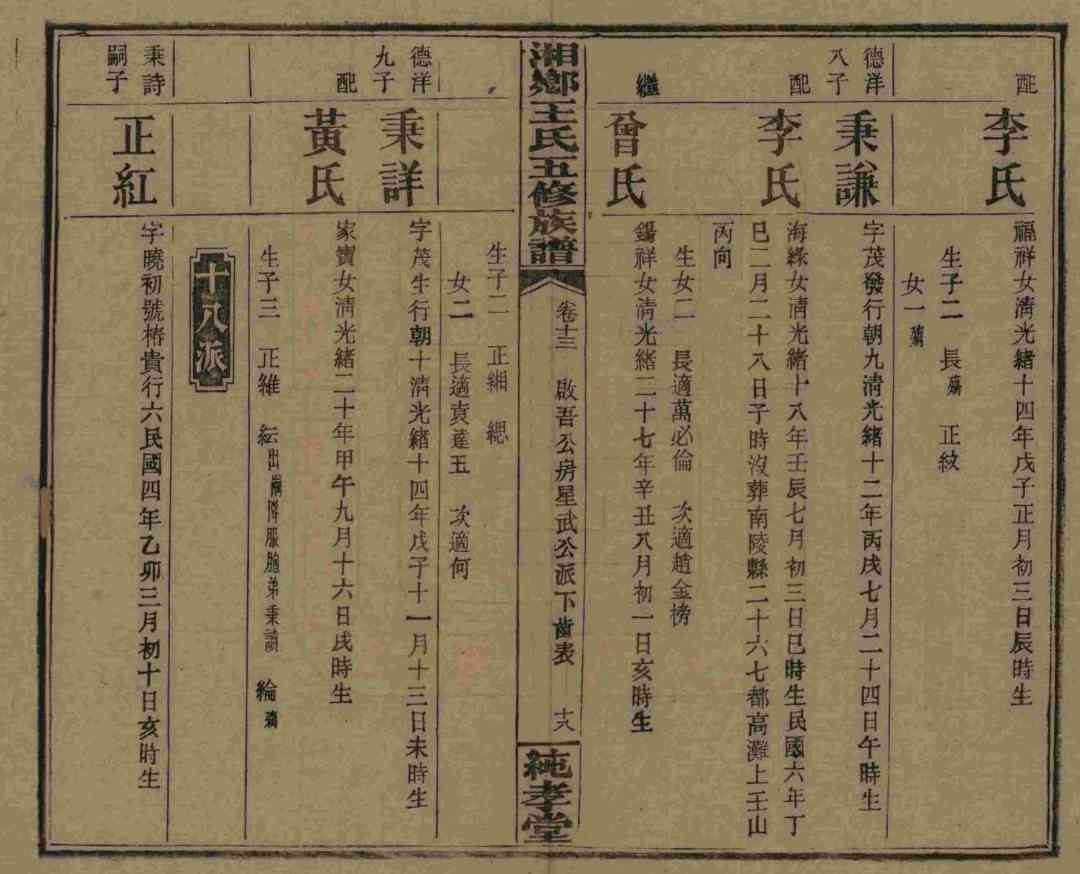 配
李氏
福祥女清光緒十四年戊子正月初三日辰時生
生子二 長殤 正紋
女一殤
德洋
八子
秉謙
字茂發行朝九清光緒十二年丙戌七月二十四日午時生
配
李氏
海綠女清光緒十八年壬辰七月初三日巳時生民國六年丁
巳二月二十八日子時沒葬南陵縣二十六七都高灘上壬山
丙向
生女二 長適萬必倫 次適趙金榜
繼
曾氏
錫祥女清光緒二十七年辛丑八月初一日亥時生
湘鄉王氏五修族譜
卷十三 啟吾公房星武公派下齒表 十八
純孝堂
生子二 正緗 緦
女二 長適袁達五 次適何
德洋
九子
秉詳
字茂生行朝十清光緒十四年戊子十一月十三日未時生
配
黃氏
家寶女清光緒二十年甲午九月十六日戌時生
生子三 正維 紜出嗣降服胞弟秉詩 綸殤
十八派
秉詩
嗣子
正紅
字曉初號椿貴行六民國四年乙卯三月初十日亥時生